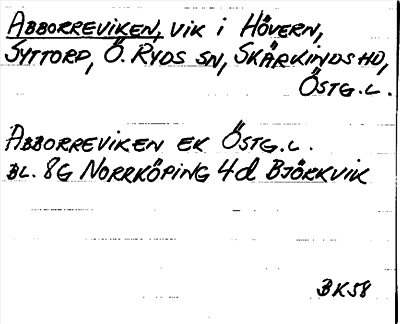 ABBORREVIKEN, VIK I HÖVERN,
SYTTORP, Ö. RYDS SN, SKÄRKINDS HD,
ÖSTG.L.
ABBORREVIKEN EK ÖSTG.L.
BL. 8G NORRKÖPING 4d BJÖRKVIK
BK58